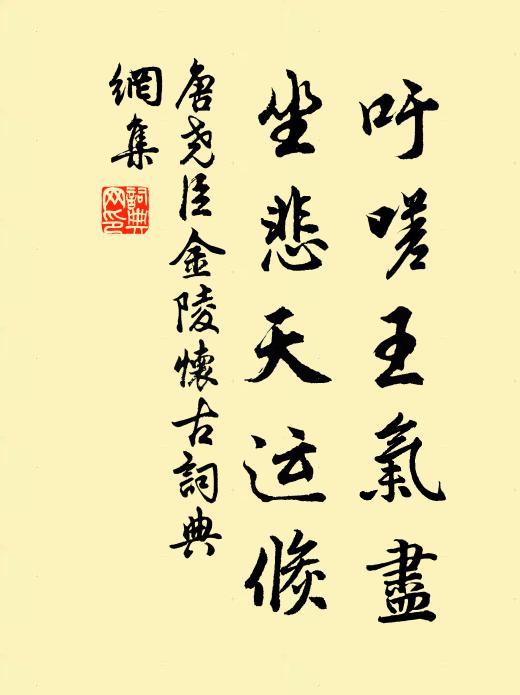 吁嗟王氣盡
坐悲天运倏
唐尧臣金陵懷古詞典
網集
詞典
网印